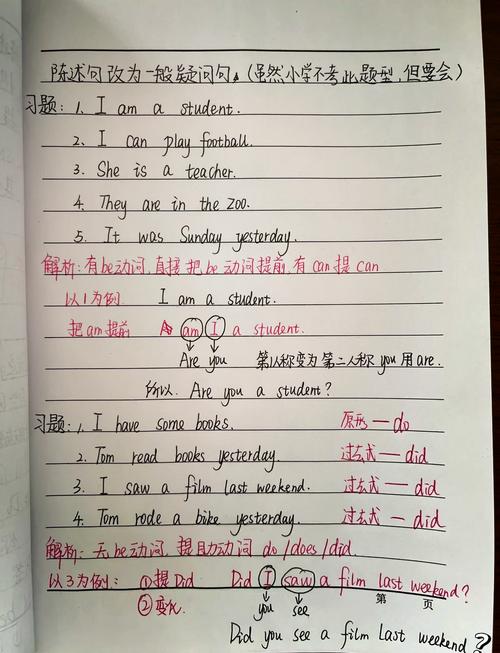 陈述句改为一般疑问句。(虽然小学不考此题型,但要会)
习题: 1. I am a student.
2. I can play football.
3. She is a teacher.
4. They are in the zoo.
5. It was Sunday yesterday.
解析:有be动词,直接把be动词提前,有can提can
以1为例 I am a student.
把am提前 am I a student.
Are you 第一人称变为第二人称you用are.
所以. Are you a student?
习题: 1. I have some books. 原形—do
2. Tom read books yesterday. 过去式—did
3. I saw a film last weekend. 过去式—did
4. Tom rode a bike yesterday. 过去式—did
解析:无be动词,提助动词do/does/did.
以3为例: ①提Did Did I saw a film last weekend?
第 页
②变化. you see
Did you see a film last weekend?